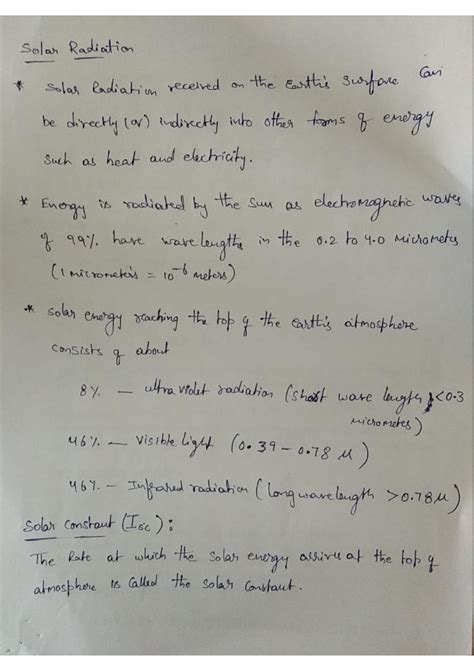 Solar Radiation
* Solar Radiation received on the Earth's surface can
be directly (or) indirectly into other forms of energy
such as heat and electricity.
* Energy is radiated by the sun as electromagnetic waves
of 99% have wave lengths in the 0.2 to 4.0 micrometers
(1 micrometers = 10⁻⁶ meters)
* Solar energy reaching the top of the earth's atmosphere
consists of about
8% — ultra violet radiation (short wave length <0.3
micrometers)
46% — Visible light (0.39 – 0.78 μ)
46% – Infrared radiation (long wave length >0.78μ)
Solar constant (Isc):
The Rate at which the solar energy arrives at the top of
atmosphere is called the solar constant.